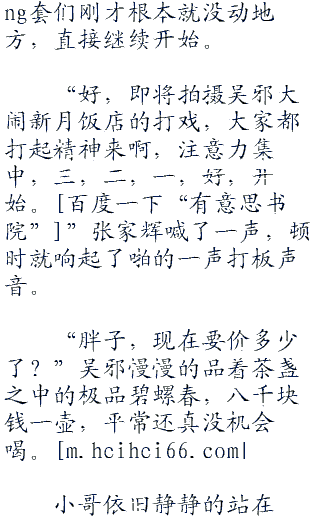 ng套们刚才根本就没动地
方，直接继续开始。
“好，即将拍摄吴邪大
闹新月饭店的打戏，大家都
打起精神来啊，注意力集
中，三，二，一，好，开
始。[百度一下“有意思书
院”]”张家辉喊了一声，顿
时就响起了啪的一声打板声
音。
“胖子，现在要价多少
了？”吴邪慢慢的品着茶盏
之中的极品碧螺春，八千块
钱一壶，平常还真没机会
喝。[m.hcihci66.com]
小哥依旧静静的站在